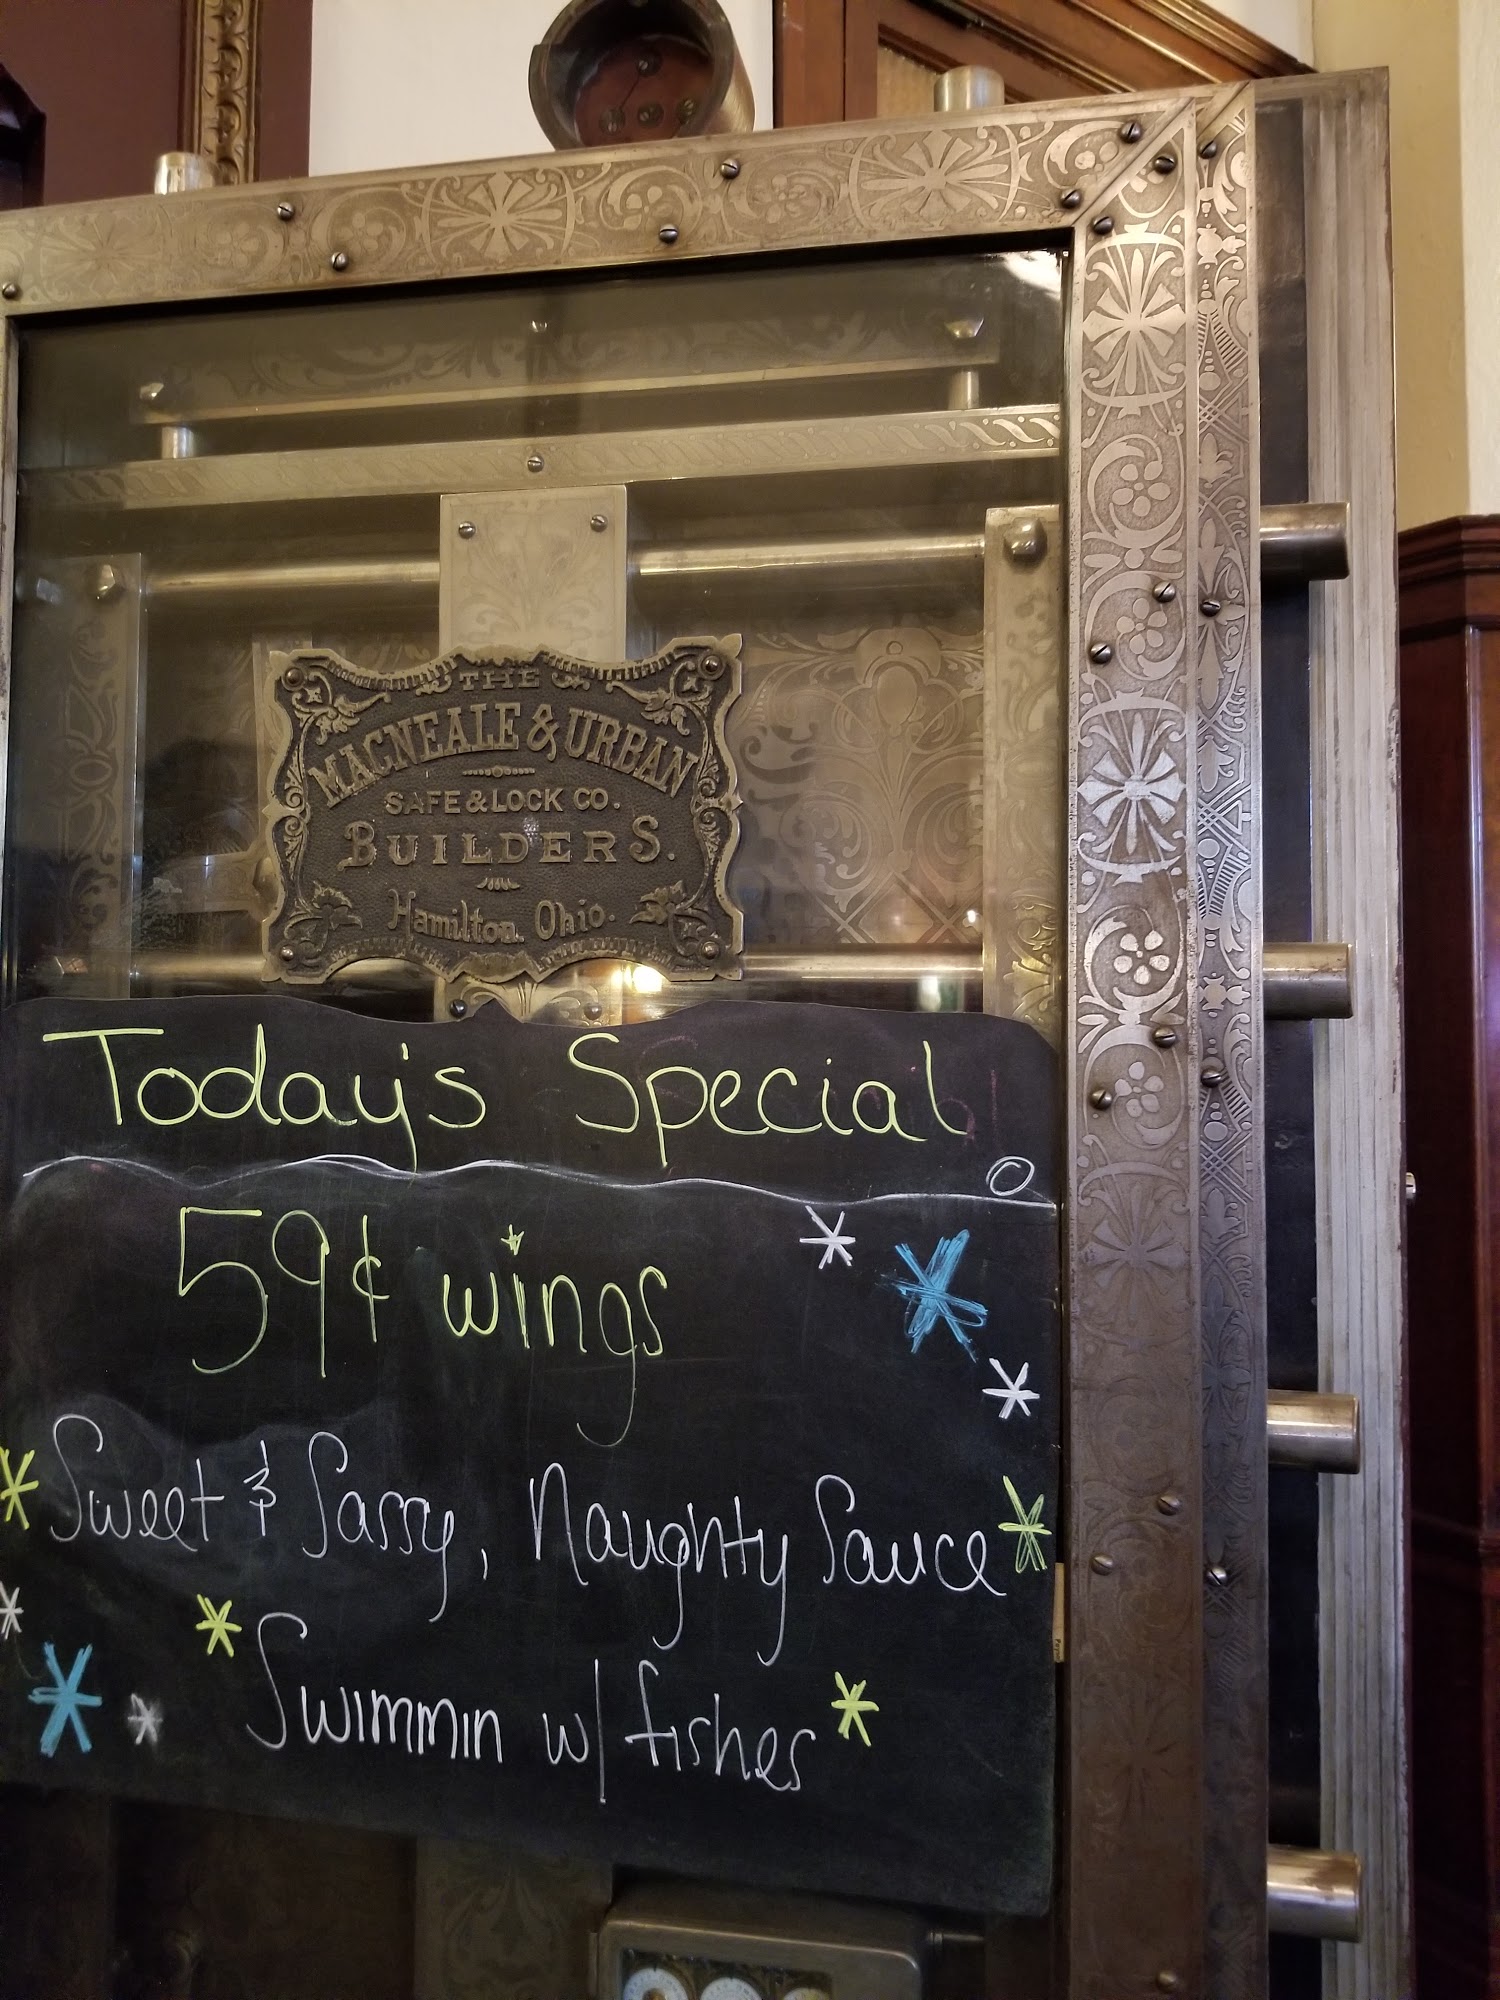 THE
MACNEALE & URBAN
SAFE & LOCK CO.
BUILDERS.
Hamilton, Ohio.
Today's Special
59¢ wings
Sweet & Sassy, Naughty Sauce
Swimmin w/ fishes